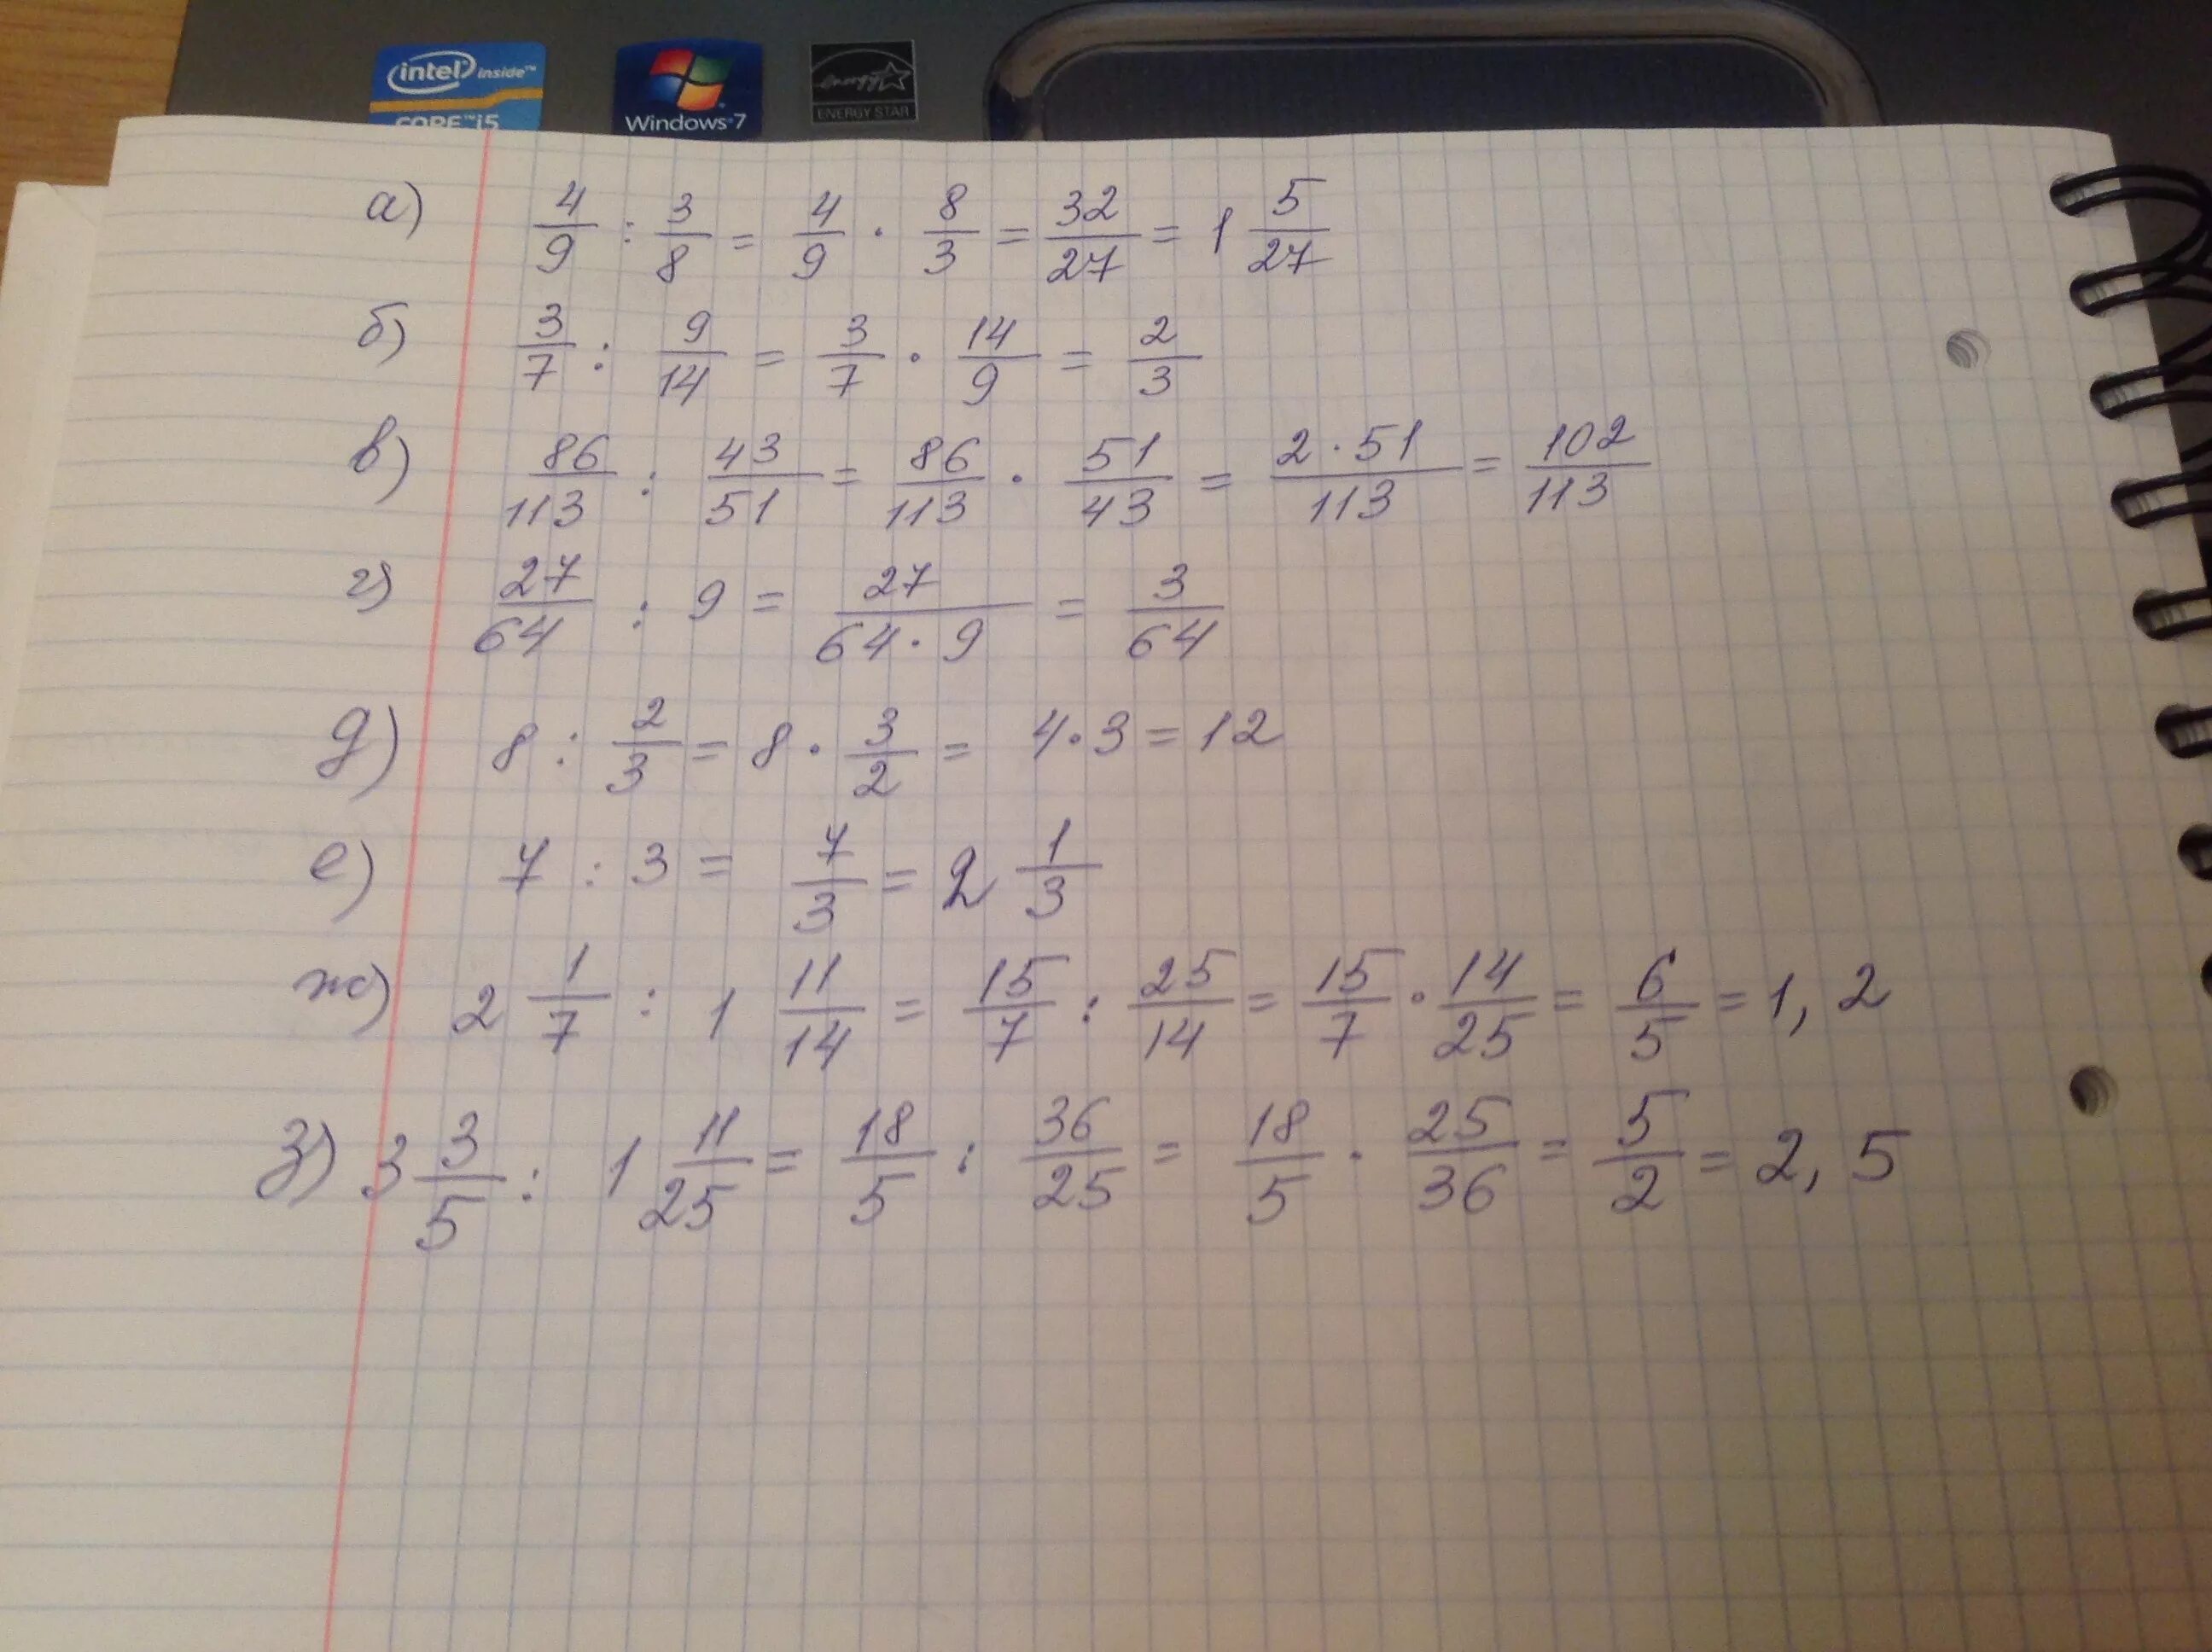 intel inside™
CORE™ i5
Windows 7
energy
ENERGY STAR
а) 4/9 : 3/8 = 4/9 · 8/3 = 32/27 = 1 5/27
б) 3/7 : 9/14 = 3/7 · 14/9 = 2/3
в) 86/113 : 43/51 = 86/113 · 51/43 = 2 · 51/113 = 102/113
г) 27/64 : 9 = 27/64 · 9 = 3/64
д) 8 : 2/3 = 8 · 3/2 = 4 · 3 = 12
е) 7 : 3 = 7/3 = 2 1/3
ж) 2 1/7 : 1 11/14 = 15/7 : 25/14 = 15/7 · 14/25 = 6/5 = 1,2
з) 3 3/5 : 1 11/25 = 18/5 : 36/25 = 18/5 · 25/36 = 5/2 = 2,5